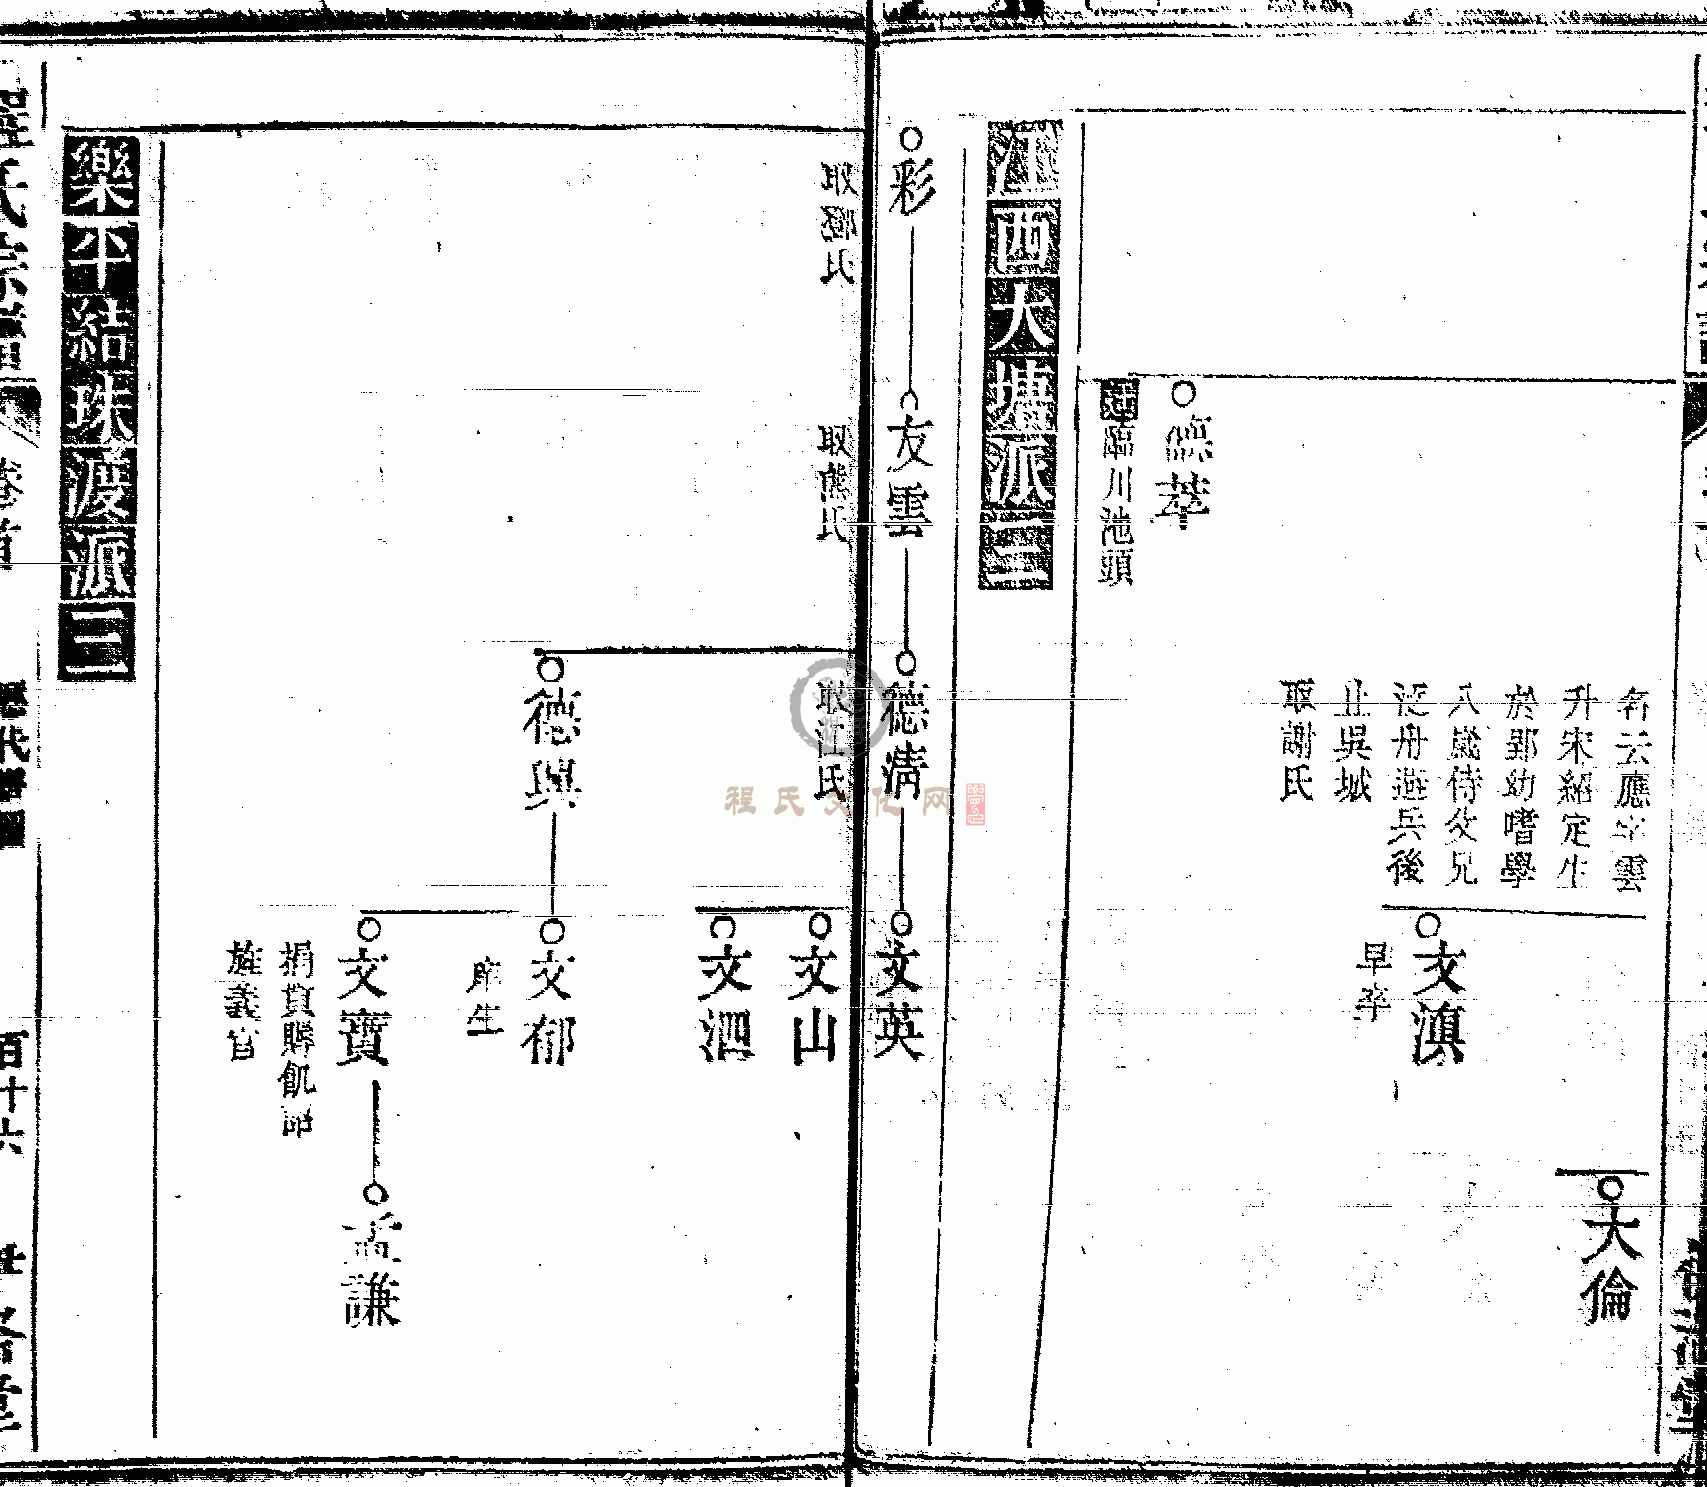 大倫
名云應字雲
升宋紹定生
於郢幼嗜學
八歲侍父兄
泛舟遊兵後
止吳城
娶謝氏
文滇
早卒
德萃
遷臨川池頭
江西大塘派三
彩
友雲
德清
文英
娶氏
娶熊氏
娶江氏
文山
文泗
德興
文郁
庠生
文寶
捐貲賑飢
旌義官
孟謙
樂平結珠渡派三
程氏宗譜
卷首
歷代
百十六
程氏文化网